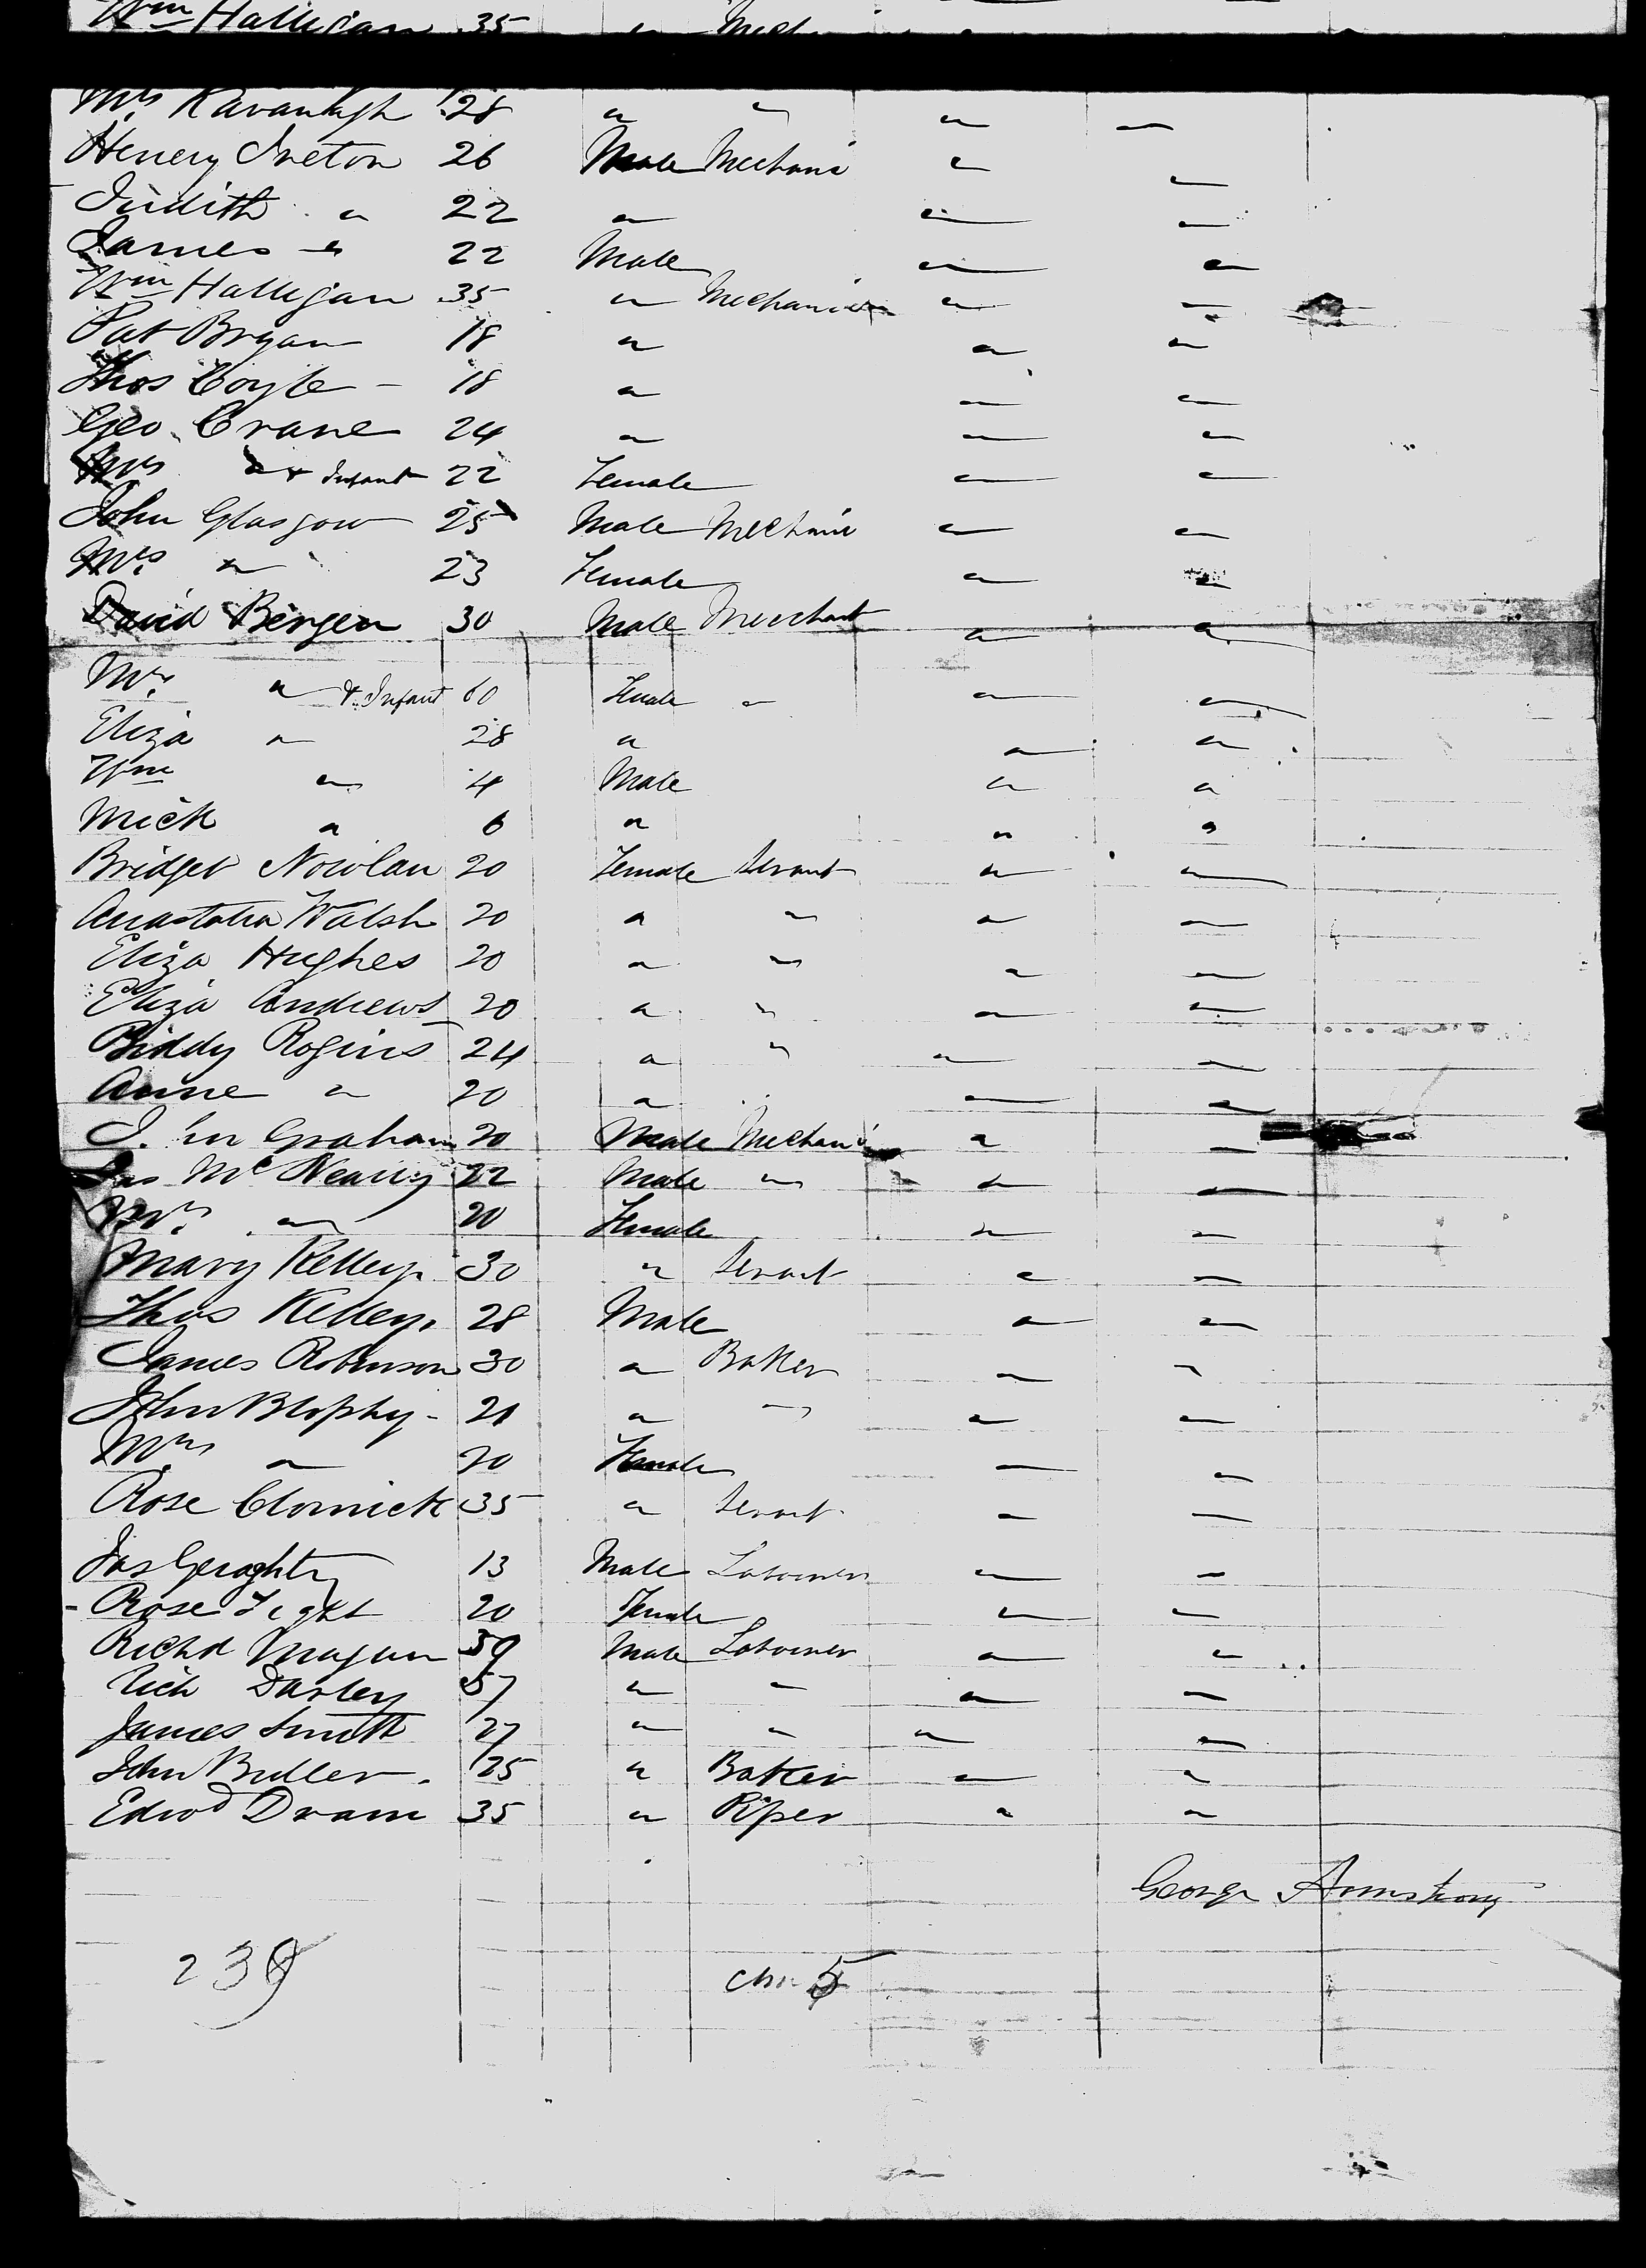 Wm Halligan 35 " Mech
Mrs Kavanagh 28 " " " "
Henery Ireton 26 Male Mechanic " "
Judith " 22 " " "
James " 22 Male " "
Wm Halligan 35 " Mechanic " "
Pat Bryan 18 " " "
Thos Coyle - 18 " " "
Geo. Crane 24 " " "
Mrs " & Infant 22 Female " "
John Glasgow 25 Male Mechanic " "
Mrs " 23 Female " "
David Bergen 30 Male Merchant " "
Mrs " & Infant 60 Female " " "
Eliza " 28 " " "
Wm " 4 Male " "
Mick " 6 " " "
Bridget Nowlan 20 Female Servant " "
Anastatia Walsh 20 " " " "
Eliza Hughes 20 " " " "
Eliza Andrews 20 " " " "
Biddy Rogins 24 " " " "
Anne " 20 " " "
Graham 20 Male Mechanic " "
Jas Mc Nearry 22 Male " " "
Mrs " 20 Female " "
Mary Kelley 30 " Servant " "
Thos Kelley 28 Male " "
James Robinson 30 " Baker " "
John Blophy - 21 " " " "
Mrs " 20 Female " "
Rose Clornick 35 " Servant " "
Jas Geraghty 13 Male Labourer " "
Rose Tight 20 Female " "
Richd Magan 59 Male Labourer " "
Rich Darley 57 " " " "
James Smith 27 " " " "
John Butler . 25 " Baker " "
Edwd Dram 35 " Piper " "
George Armstrong
239